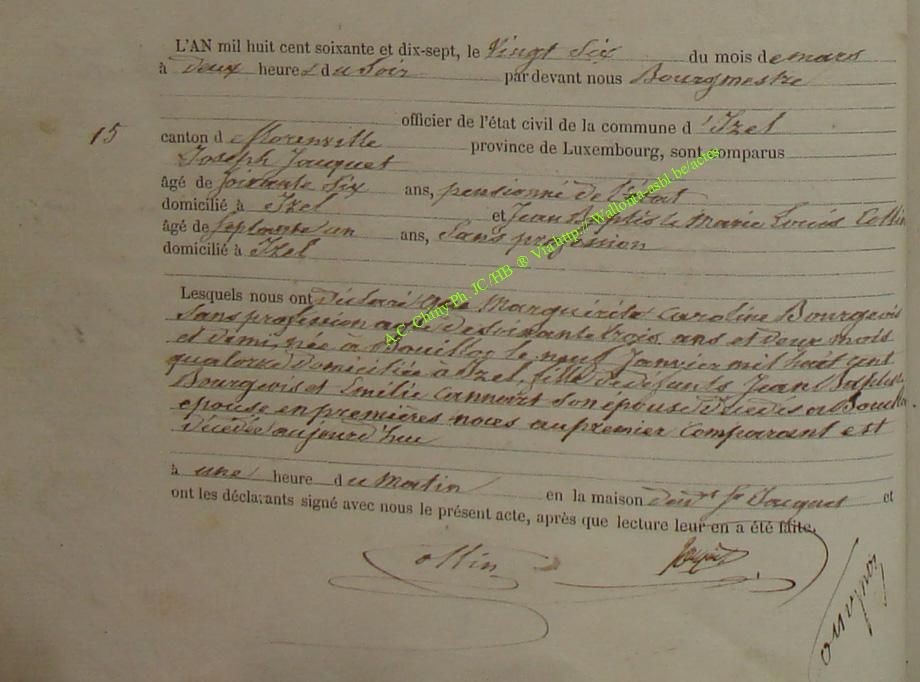 L'AN mil huit cent soixante et dix-sept, le Vingt Six du mois de mars
à Deux heures du Soir par devant nous Bourgmestre
officier de l'état civil de la commune d'Izel
15
canton de florenville province de Luxembourg, sont comparus
Joseph Jacquet
âgé de Soixante Six ans, pensionné de l'état
domicilié à Izel et Jean Baptiste Marie Louis Collin
âgé de Septante un ans, Sans profession
domicilié à Izel
A.C. Chiny Ph. JC/HB ® Via http://Wallonia-asbl.be/actes
Lesquels nous ont Déclaré que Marguérite Caroline Bourgeois
Sans profession agée de soixante trois ans et deux mois
et demi, née a Bouillon le neuf Janvier mil huit cent
quatorze domiciliée a Izel, fille de défunts Jean Baptiste
Bourgeois et Emélie Cannart Son épouse Décédés a Bouillon
épouse en premières noces au premier Comparant est
Décédée aujourd'hui
à une heure du Matin en la maison dudit Jacquet et
ont les déclarants signé avec nous le présent acte, après que lecture leur en a été faite.
Collin Jacquet